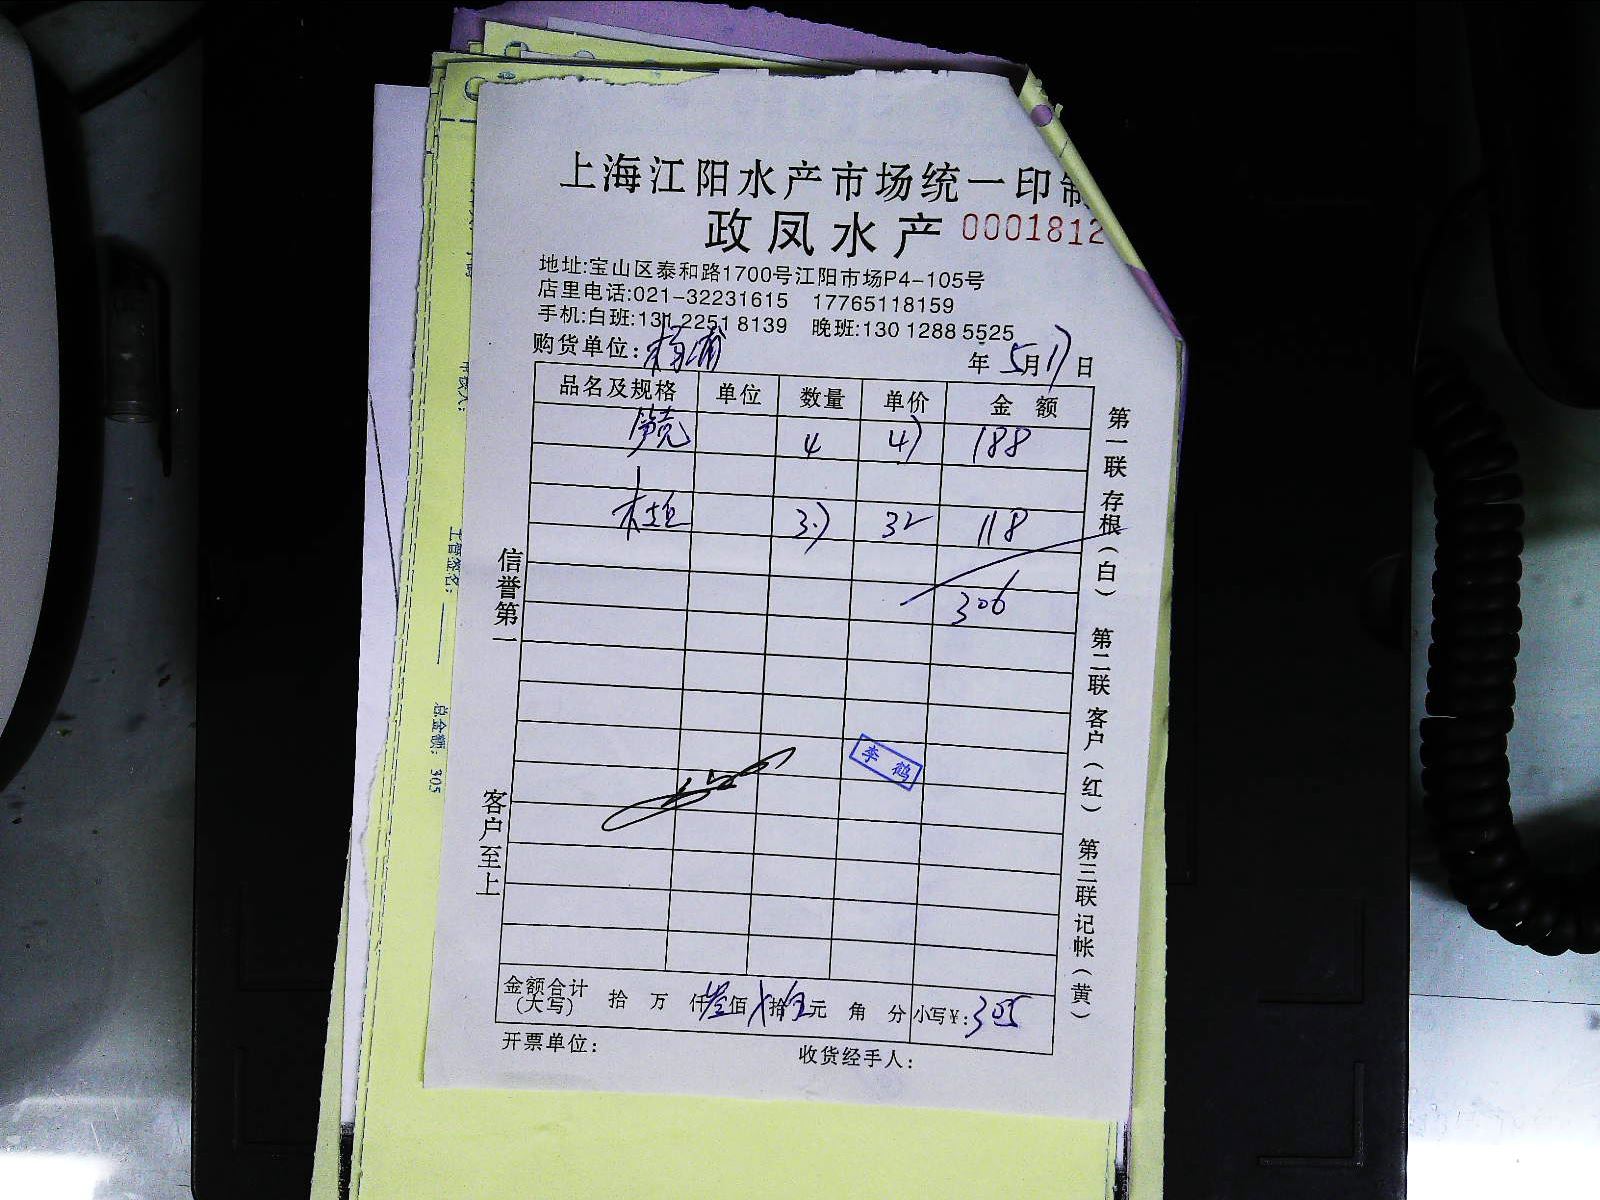 上海江阳水产市场统一印制
政凤水产 0001812
地址:宝山区泰和路1700号江阳市场P4-105号
店里电话:021-32231615 17765118159
手机:白班:131 2251 8139 晚班:130 1288 5525
购货单位:杨浦 年 5月17日
品名及规格 单位 数量 单价 金额
笋壳 4 47 188
桂 3.7 32 118
306
李鹤
金额合计(大写) 拾 万 仟叁佰 拾伍元 角 分 小写¥:305
开票单位: 收货经手人:
信誉第一
客户至上
第一联 存根(白) 第二联 客户(红) 第三联 记帐(黄)
主管签名:
总金额: 305